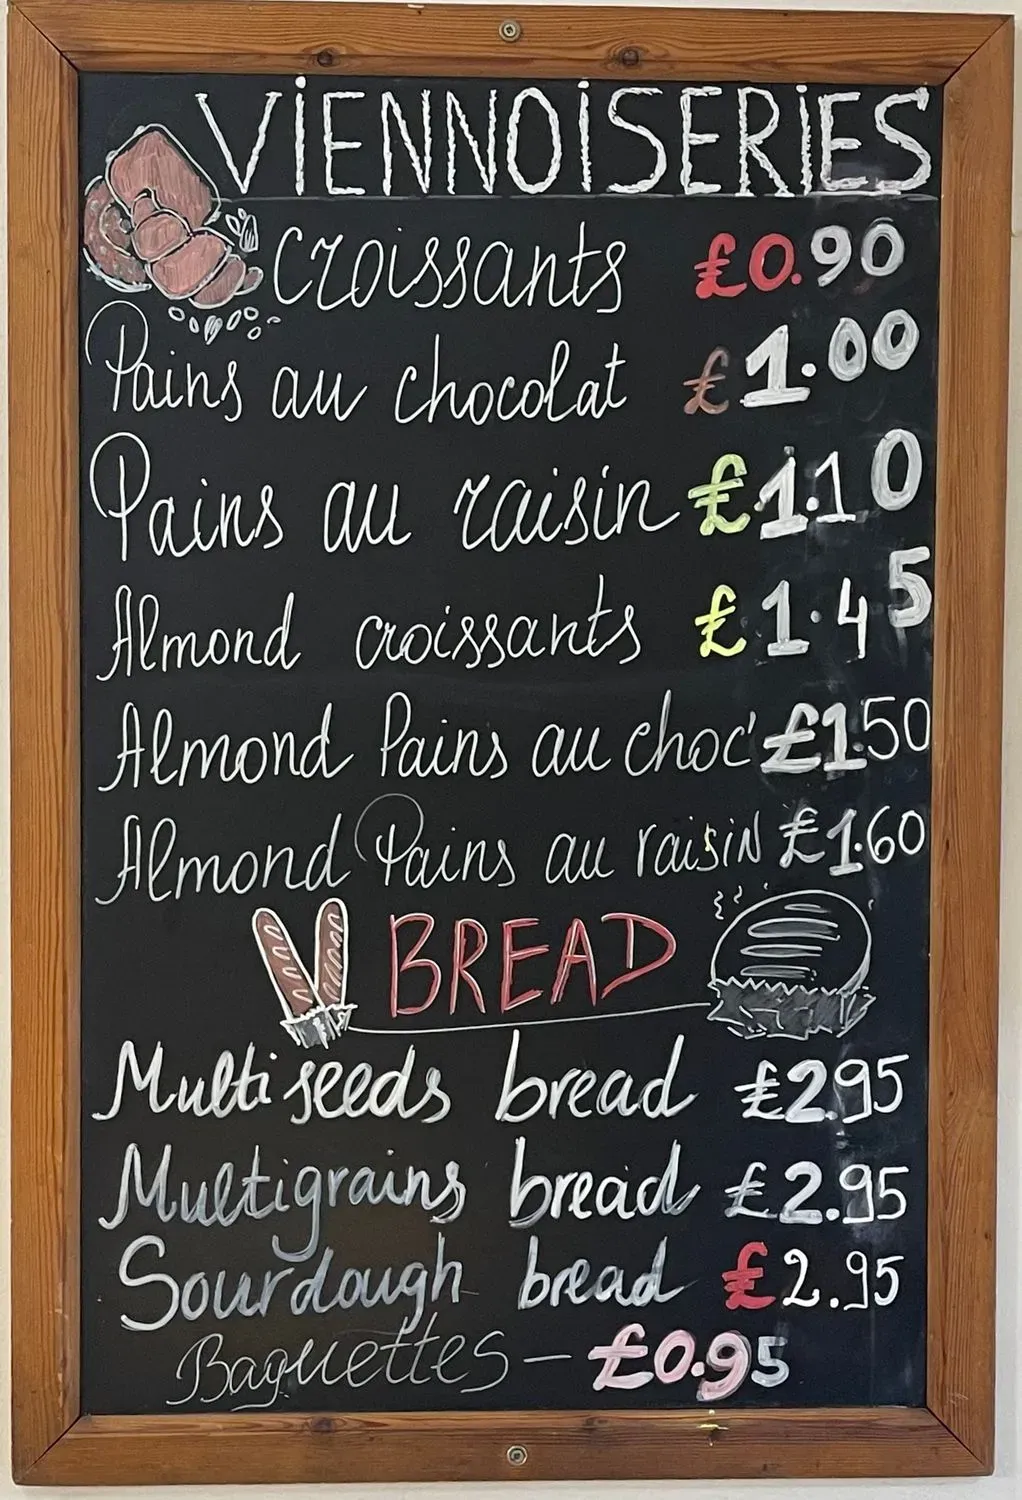 ViENNOiSERiES
Croissants £0.90
Pains au chocolat £1.00
Pains au raisin £1.10
Almond croissants £1.45
Almond Pains au choc' £1.50
Almond Pains au raisin £1.60
BREAD
Multiseeds bread £2.95
Multigrains bread £2.95
Sourdough bread £2.95
Baguettes - £0.95